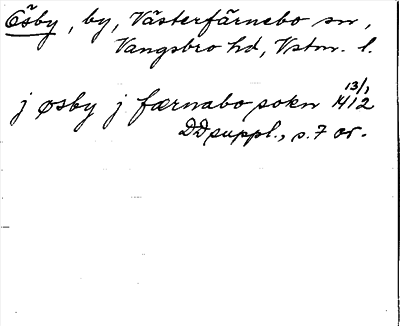 Ösby, by, Västerfärnebo sn,
Vangsbro hd, Vstm. l.
j øsby j færnabo sokn 13/1 1412
DD suppl., s. 7 or.